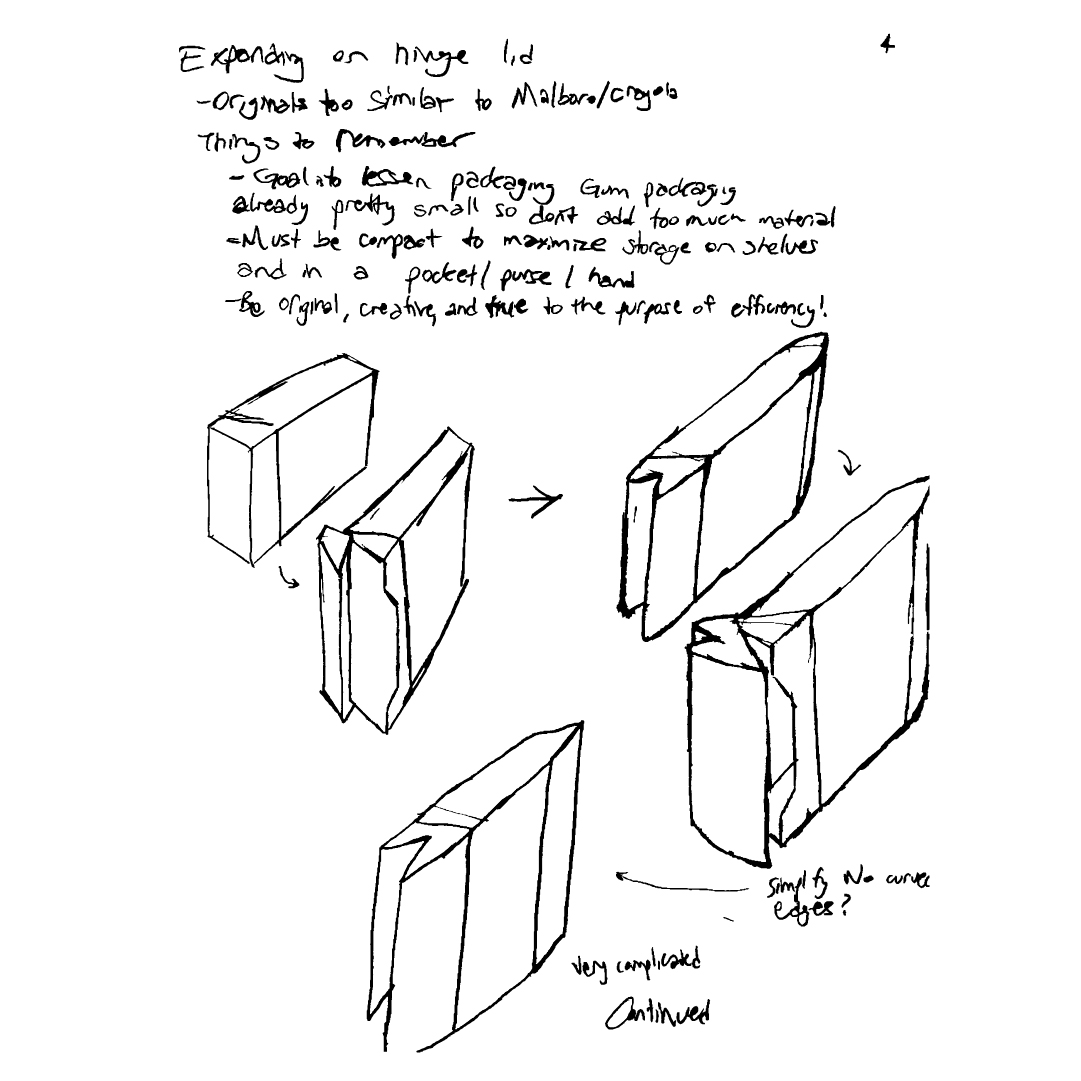 Expanding on hinge lid
4
-Originals too similar to Malboro/crayola
Things to remember
- Goal is to lessen packaging Gum packaging
already pretty small so dont add too much material
-Must be compact to maximize storage on shelves
and in a pocket/purse/hand
-Be original, creative, and true to the purpose of efficiency!
Simplify No curve
edges?
very complicated
Continued